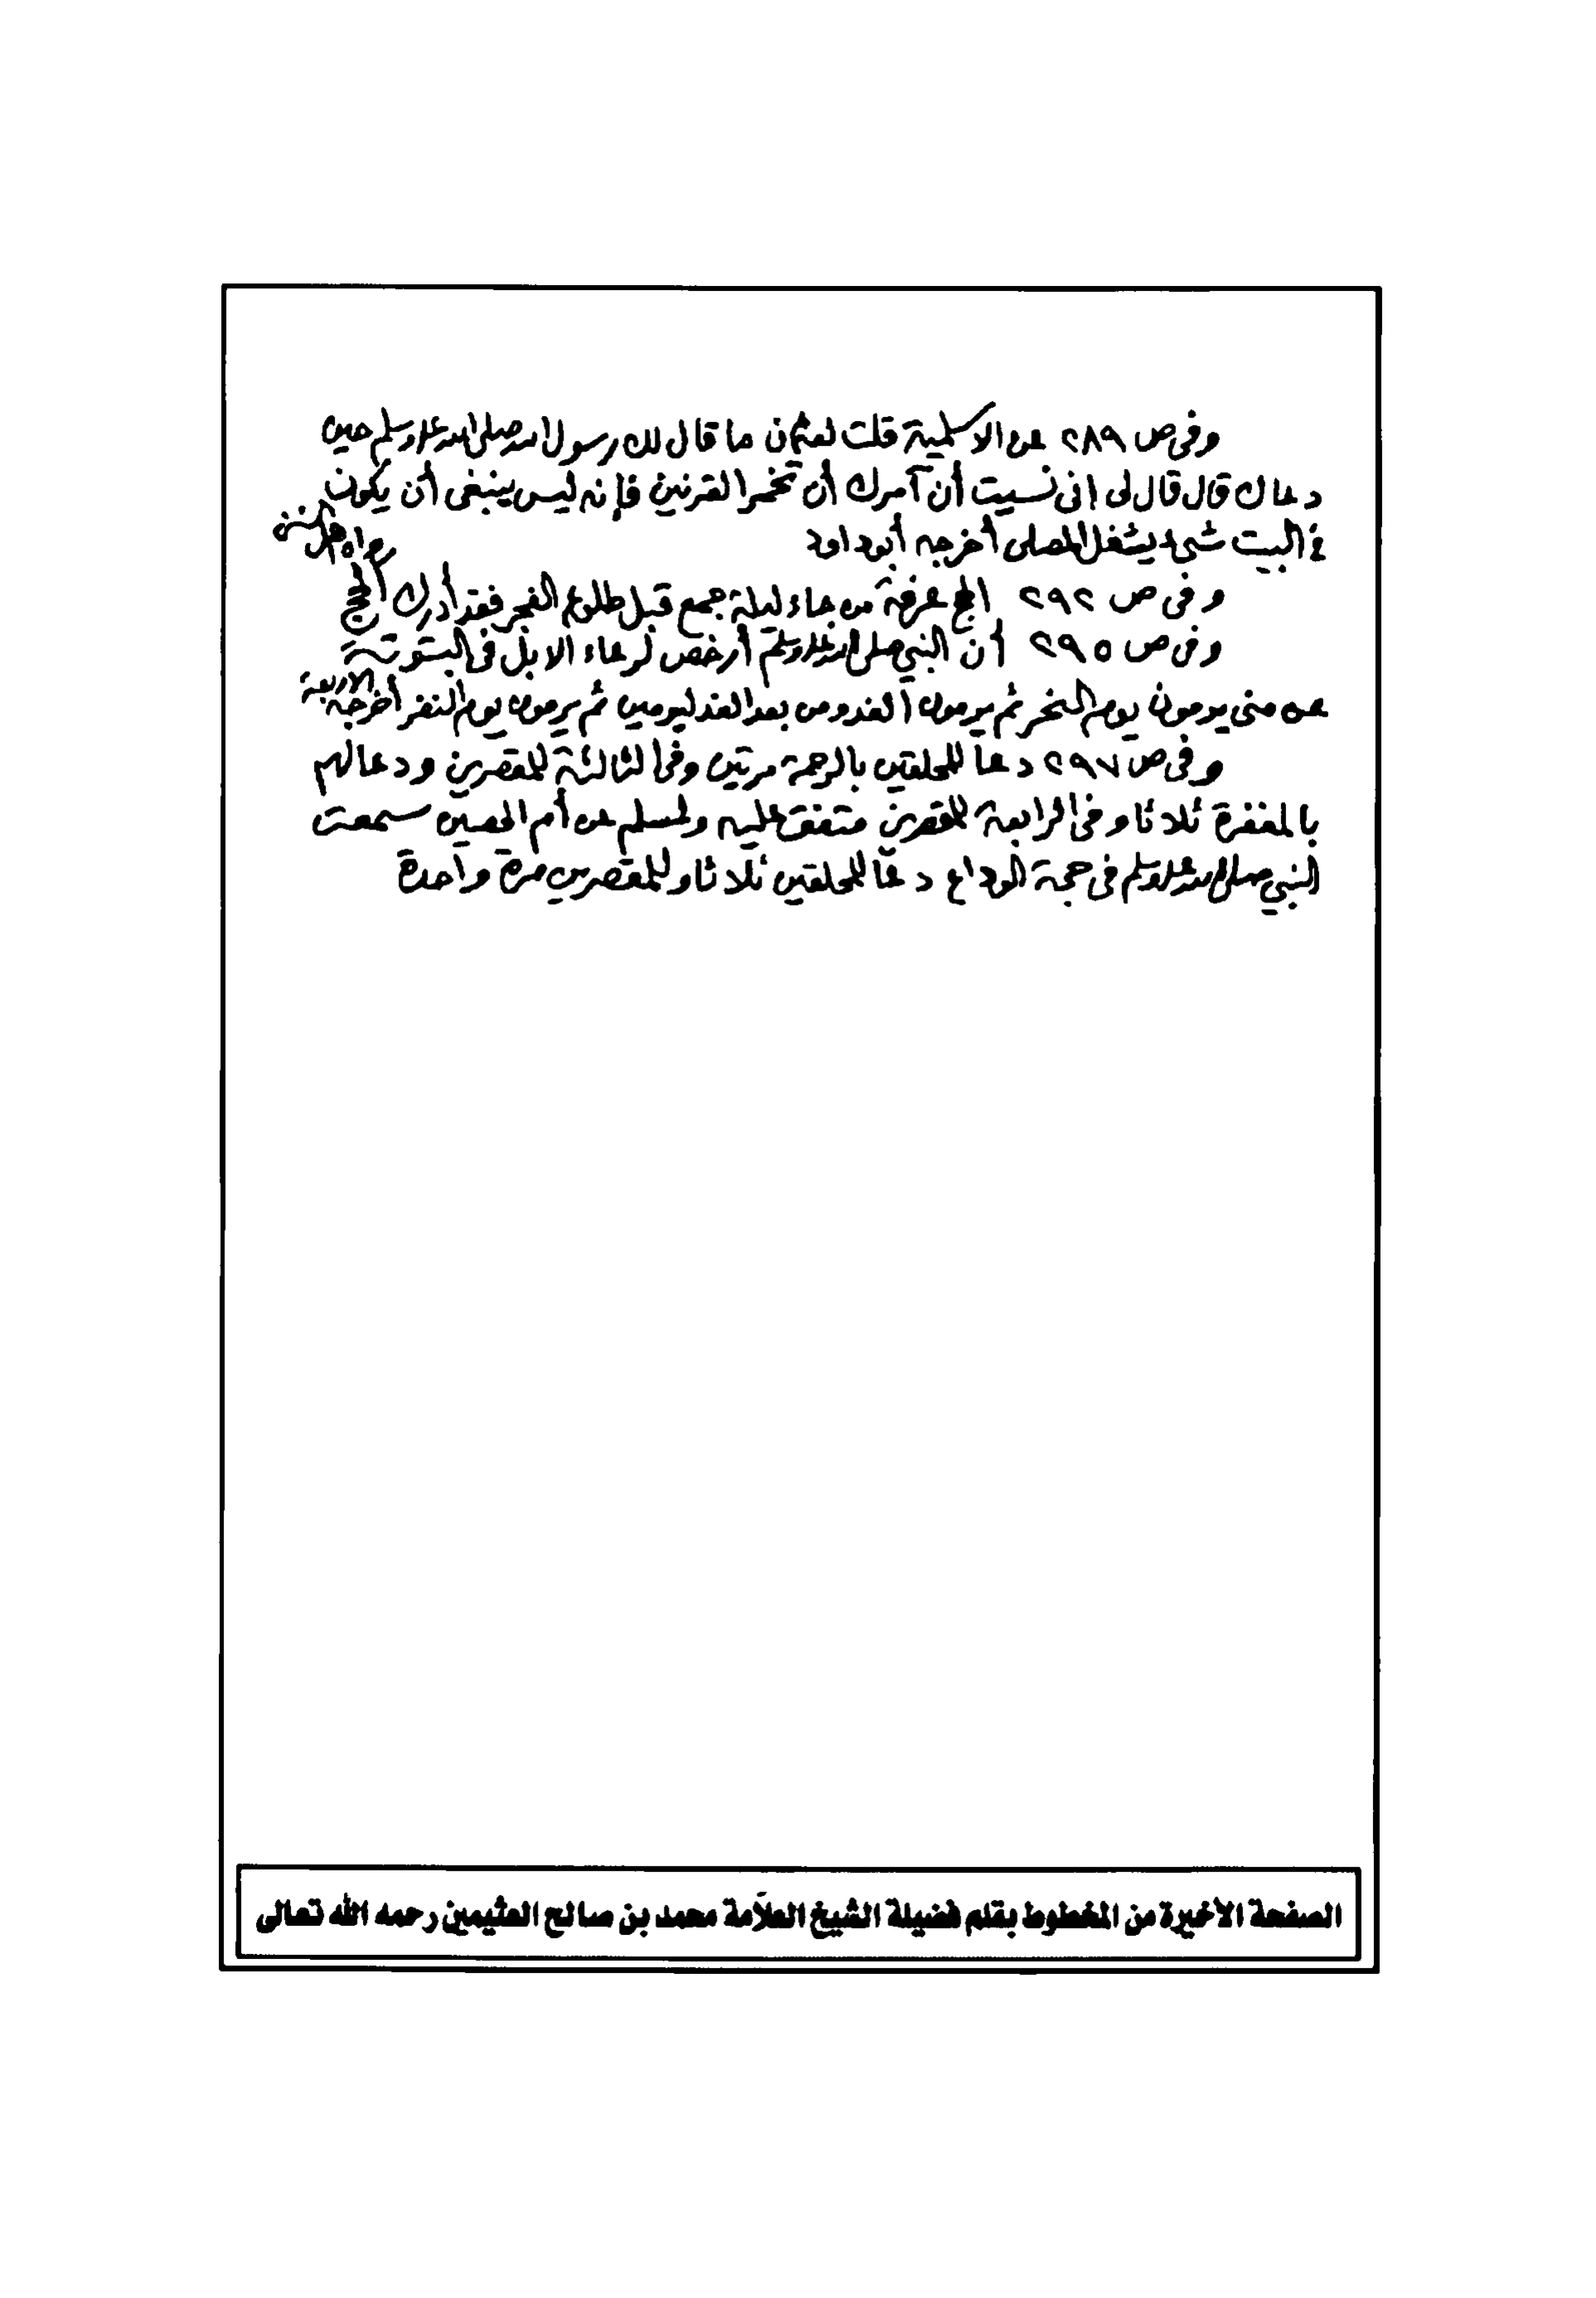 وفى ص ٢٨٩ عن الاسلمية قلت لعثمان ما قال لك رسول الله صلى الله عليه وسلم حين
دعاك قال قال لى انى نسيت أن آمرك أن تخمر القرنين فإنه ليس ينبغى أن يكون
فى البيت شىء يشغل المصلى أخرجه أبو داود
رواه أهل السنن
وفى ص ٢٩٢ الحج عرفة من جاء ليلة جمع قبل طلوع الفجر فقد أدرك الحج
وفى ص ٢٩٥ أن النبي صلى الله عليه وسلم أرخص لرعاء الابل فى البيتوتة
عن منى يرمون يوم النحر ثم يرمون الغد ومن بعد الغد ليومين ثم يرمون يوم النفر أخرجه الأربعة
وفى ص ٢٩٧ دعا للمحلقين بالرحمة مرتين وفى الثالثة للمقصرين ودعا لهم
بالمغفرة ثلاثا وفى الرابعة للمقصرين متفق عليه ولمسلم عن أم الحصين سمعت
النبي صلى الله عليه وسلم فى حجة الوداع دعا للمحلقين ثلاثا وللمقصرين مرة واحدة
الصفحة الأخيرة من المخطوط بقلم فضيلة الشيخ العلاّمة محمد بن صالح العثيمين رحمه الله تعالى